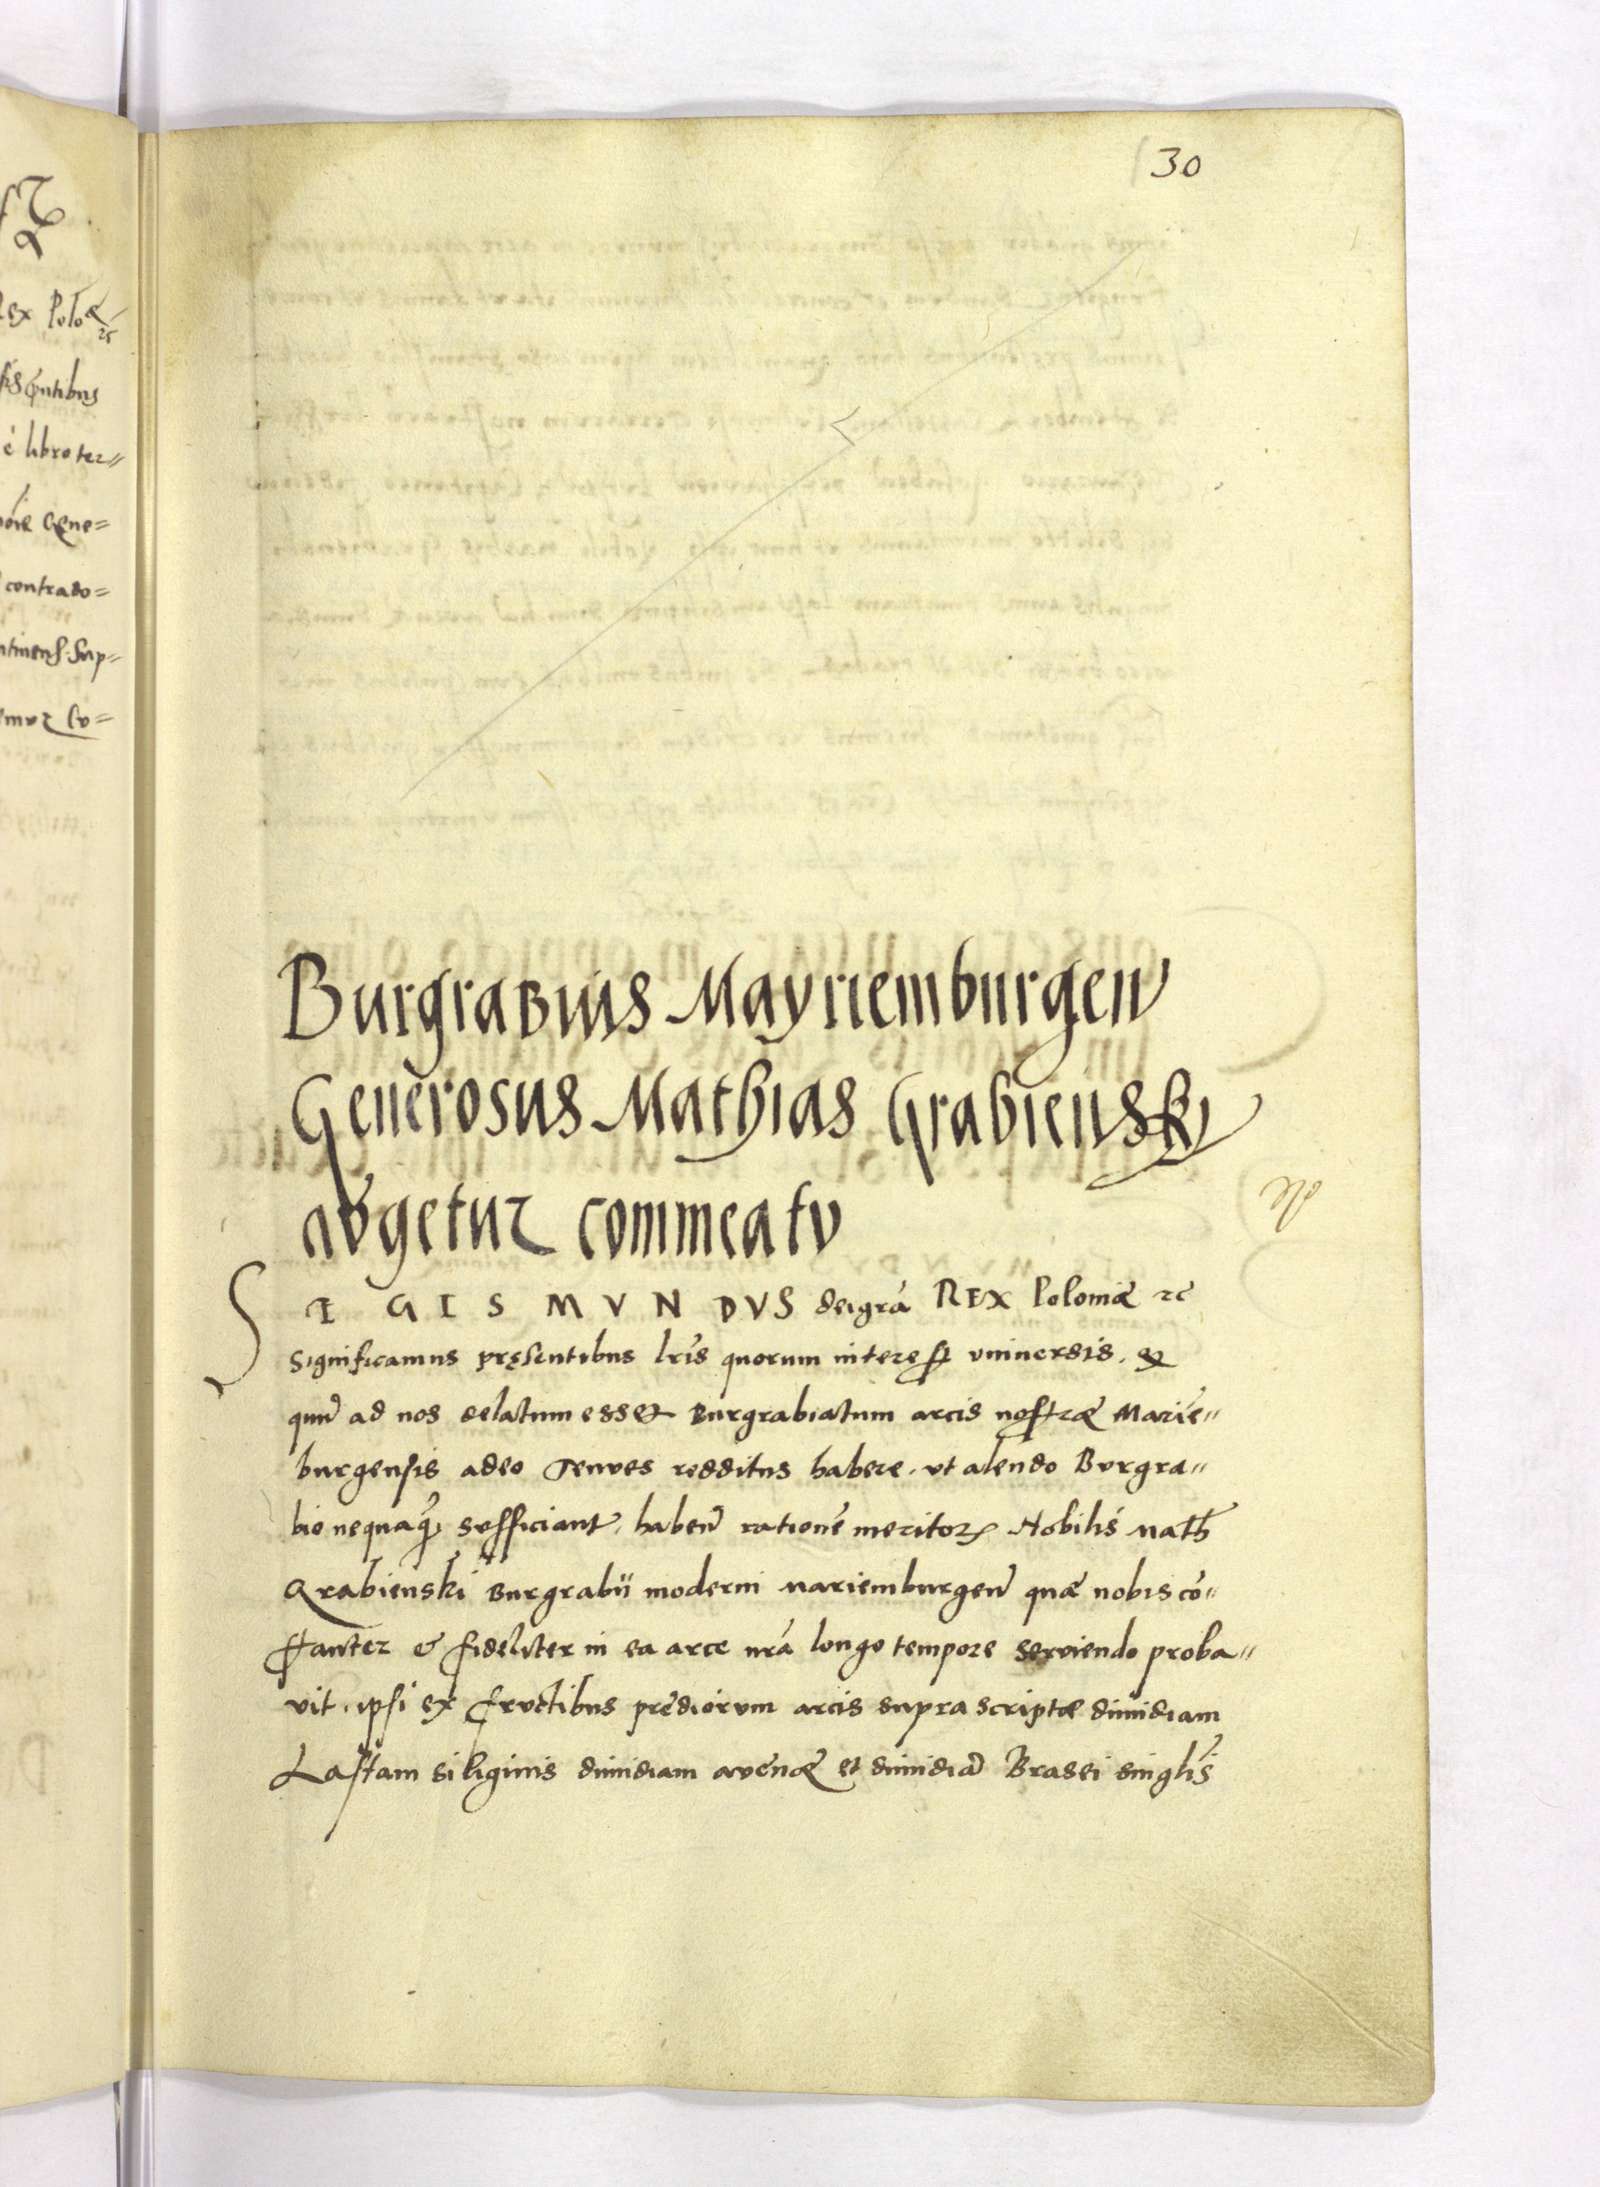 30
Rex Polo
è libro ter=
Gene=
contrado=
Sup=
Burgrabius Mayriemburgen
Generosus Mathias Grabiensky
avgetur commeatv
SIGISMVNDVS dei grã REX Poloniæ zc
Significamus pręsentibus lris quorum interest vniuersis. &
qum̃ ad nos delatum esset Burgrabiatum arcis nostræ Marie=
burgensis adeo tenves redditus habere. vt alendo Bvrgra=
bio nequaq̃ svfficiant, haben̄ rationē meritor Nobilis Math
Grabienski Burgrabii moderni Mariemburgen̄ quæ nobis cō=
stanter & fideliter in ea arce nrã longo tempore serviendo proba=
vit, ipsi ex frvctibus prediorvm arcis suprascriptæ dimidiam
Lastam siliginis dimidiam avenæ et dimidiā Brasei singlis